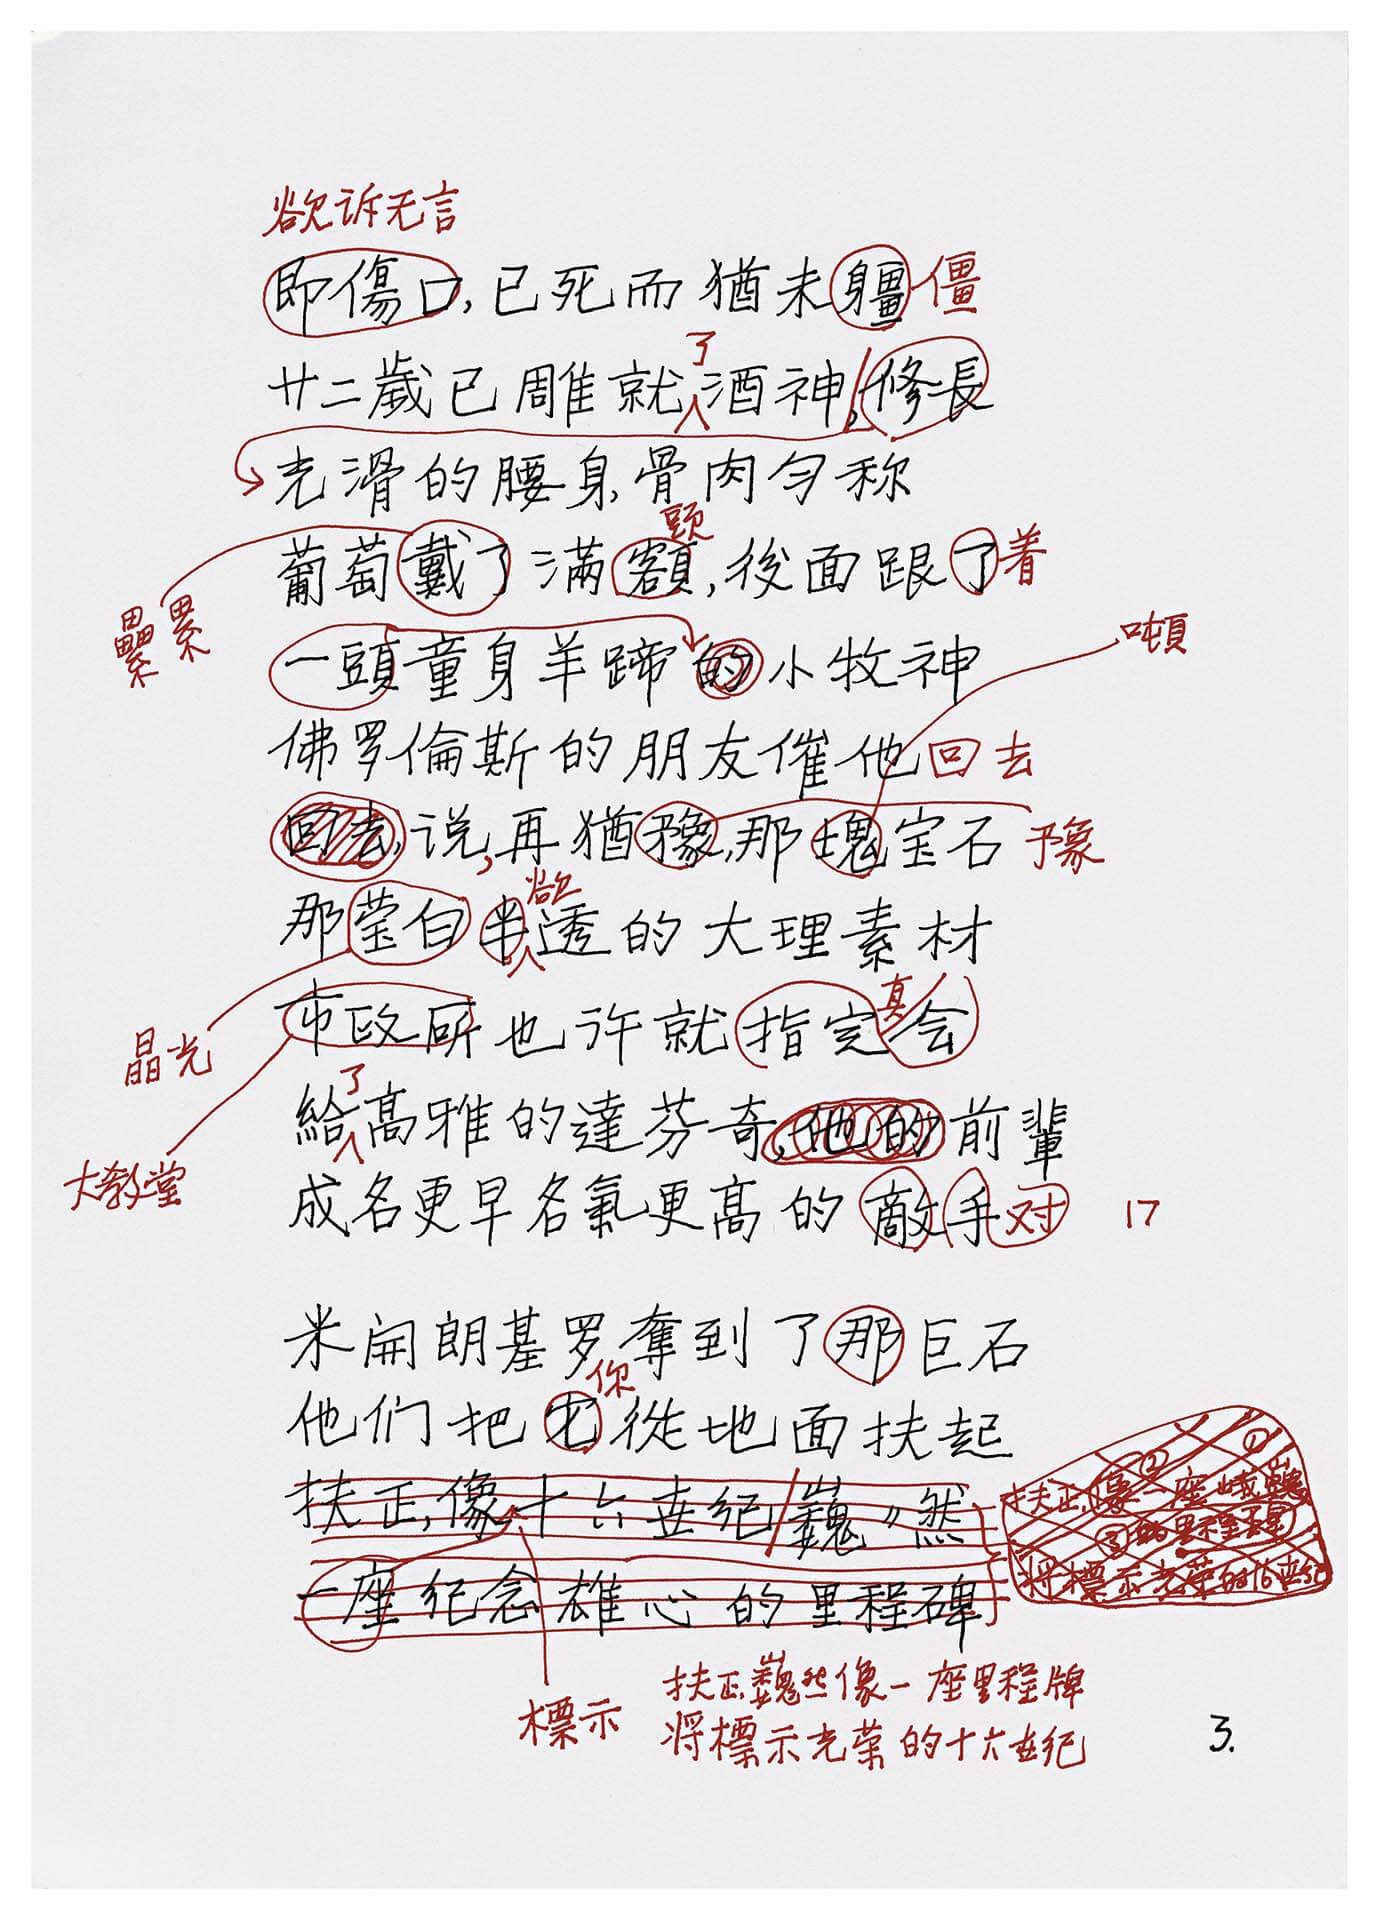 欲诉无言
即傷口,已死而猶未殭 僵
廿二歲已雕就酒神,修長
了
光滑的腰身,骨肉匀称
葡萄戴了滿額,後面跟了 着
题
纍累
一頭童身羊蹄的小牧神
吨頓
佛罗倫斯的朋友催他 回去
回去,说,再猶豫,那塊宝石 予象
那莹白半透的大理素材
欲
市政所也许就指定会
真
晶光
給高雅的達芬奇,他的前輩
了
大教堂
成名更早名氣更高的敵手 对 17
米開朗基罗奪到了那巨石
他们把它從地面扶起
你
扶正,像十六世纪巍〃然
一座纪念雄心的里程碑
扶正,像一座峨巍
①②③
將標示光荣的16世纪
標示
扶正,巍然像一座里程牌
將標示光荣的十六世纪
3.